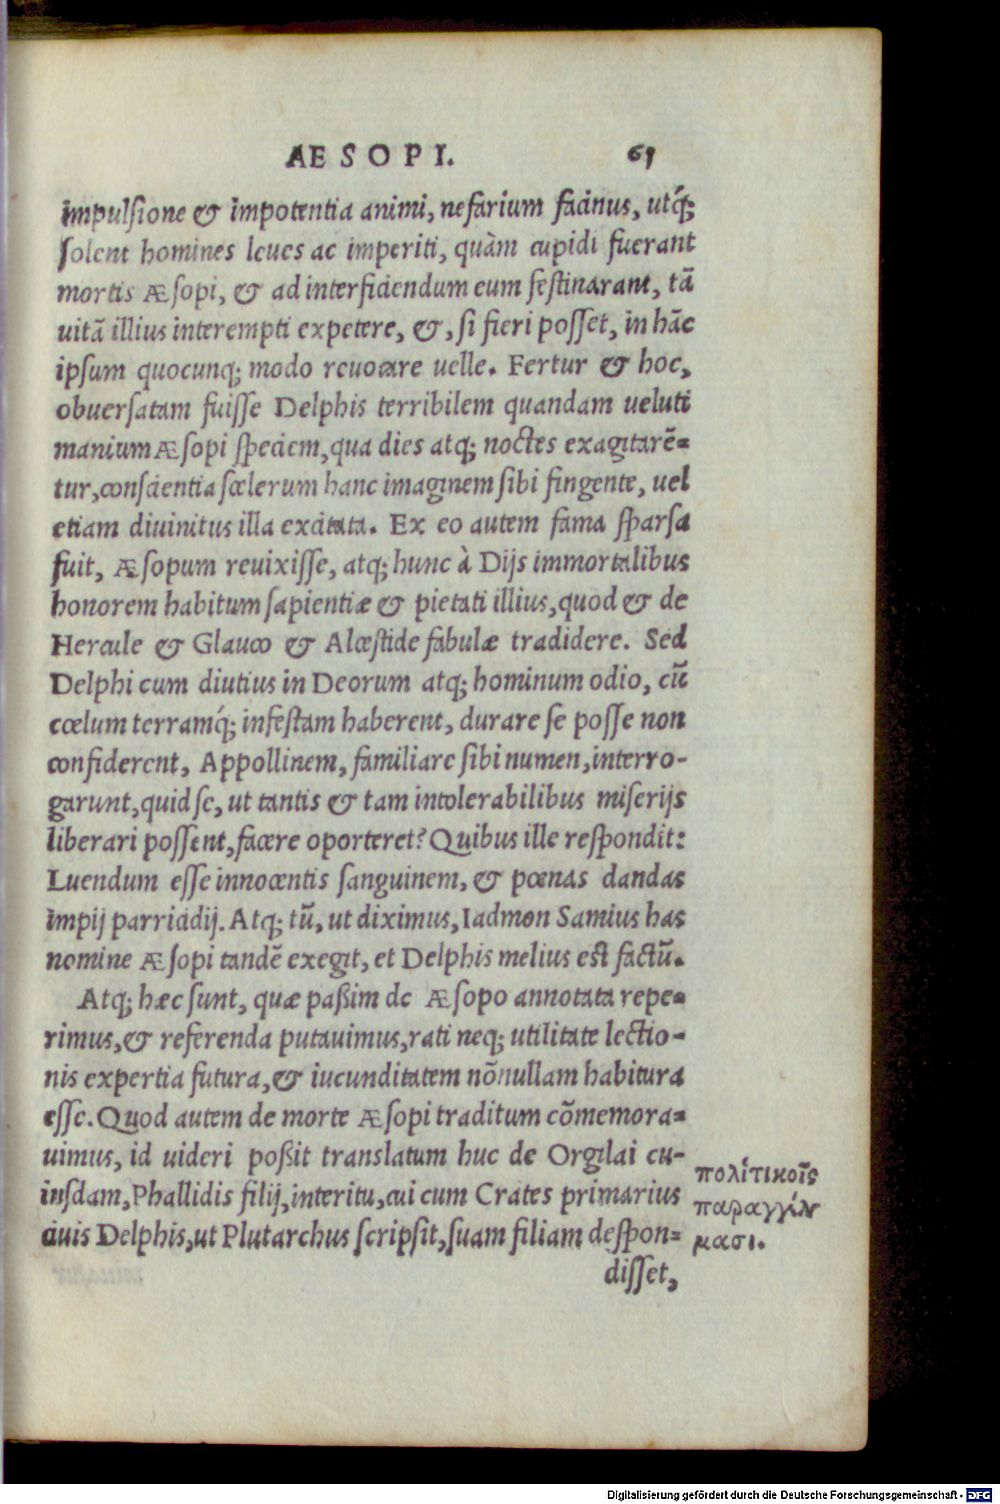 AESOPI. 61
impulsione & impotentia animi, nefarium facinus, utq́;
solent homines leues ac imperiti, quàm cupidi fuerant
mortis Æsopi, & ad interficiendum eum festinarant, tā
uitā illius interempti expetere, &, si fieri posset, in hāc
ipsum quocunq; modo reuocare uelle. Fertur & hoc,
obuersatam fuisse Delphis terribilem quandam ueluti
manium Æsopi speciem, qua dies atq; noctes exagitarē=
tur, conscientia scelerum hanc imaginem sibi fingente, uel
etiam diuinitus illa excitata. Ex eo autem fama sparsa
fuit, Æsopum reuixisse, atq; hunc à Dijs immortalibus
honorem habitum sapientiæ & pietati illius, quod & de
Hercule & Glauco & Alcestide fabulæ tradidere. Sed
Delphi cum diutius in Deorum atq; hominum odio, cū
cœlum terramq́; infestam haberent, durare se posse non
confiderent, Appollinem, familiare sibi numen, interro-
garunt, quid se, ut tantis & tam intolerabilibus miserijs
liberari possent, facere oporteret? Quibus ille respondit:
Luendum esse innocentis sanguinem, & pœnas dandas
impij parricidij. Atq; tū, ut diximus, Iadmon Samius has
nomine Æsopi tandē exegit, et Delphis melius est factū.
Atq; hæc sunt, quæ paßim de Æsopo annotata repe=
rimus, & referenda putauimus, rati neq; utilitate lectio-
nis expertia futura, & iucunditatem nōnullam habitura
esse. Quod autem de morte Æsopi traditum cōmemora=
uimus, id uideri poßit translatum huc de Orgilai cu-
iusdam, Phallidis filij, interitu, cui cum Crates primarius
ciuis Delphis, ut Plutarchus scripsit, suam filiam despon=
πολίτικοῖς
παραγγέλ
μασι.
disset,
Digitalisierung gefördert durch die Deutsche Forschungsgemeinschaft - DFG